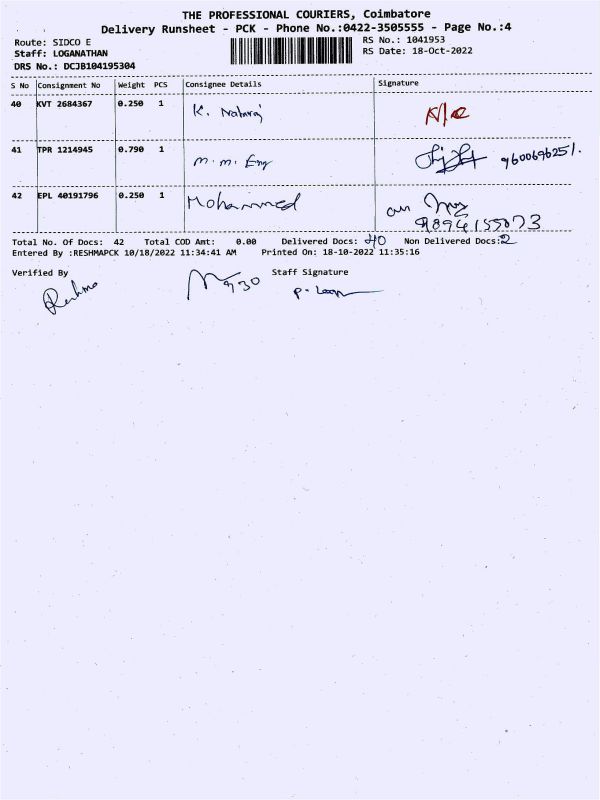 THE PROFESSIONAL COURIERS, Coimbatore
Delivery Runsheet - PCK - Phone No.:0422-3505555 - Page No.:4
Route: SIDCO E
RS No.: 1041953
Staff: LOGANATHAN
RS Date: 18-Oct-2022
DRS No.: DCJB104195304
S No Consignment No Weight PCS Consignee Details Signature
40 KVT 2684367 0.250 1 K. Nataraj
41 TPR 1214945 0.790 1 m. m. Eng 9600696251.
42 EPL 40191796 0.250 1 Mohammed
9894155073
Total No. Of Docs: 42 Total COD Amt: 0.00 Delivered Docs: 40 Non Delivered Docs:2
Entered By :RESHMAPCK 10/18/2022 11:34:41 AM Printed On: 18-10-2022 11:35:16
Verified By Staff Signature